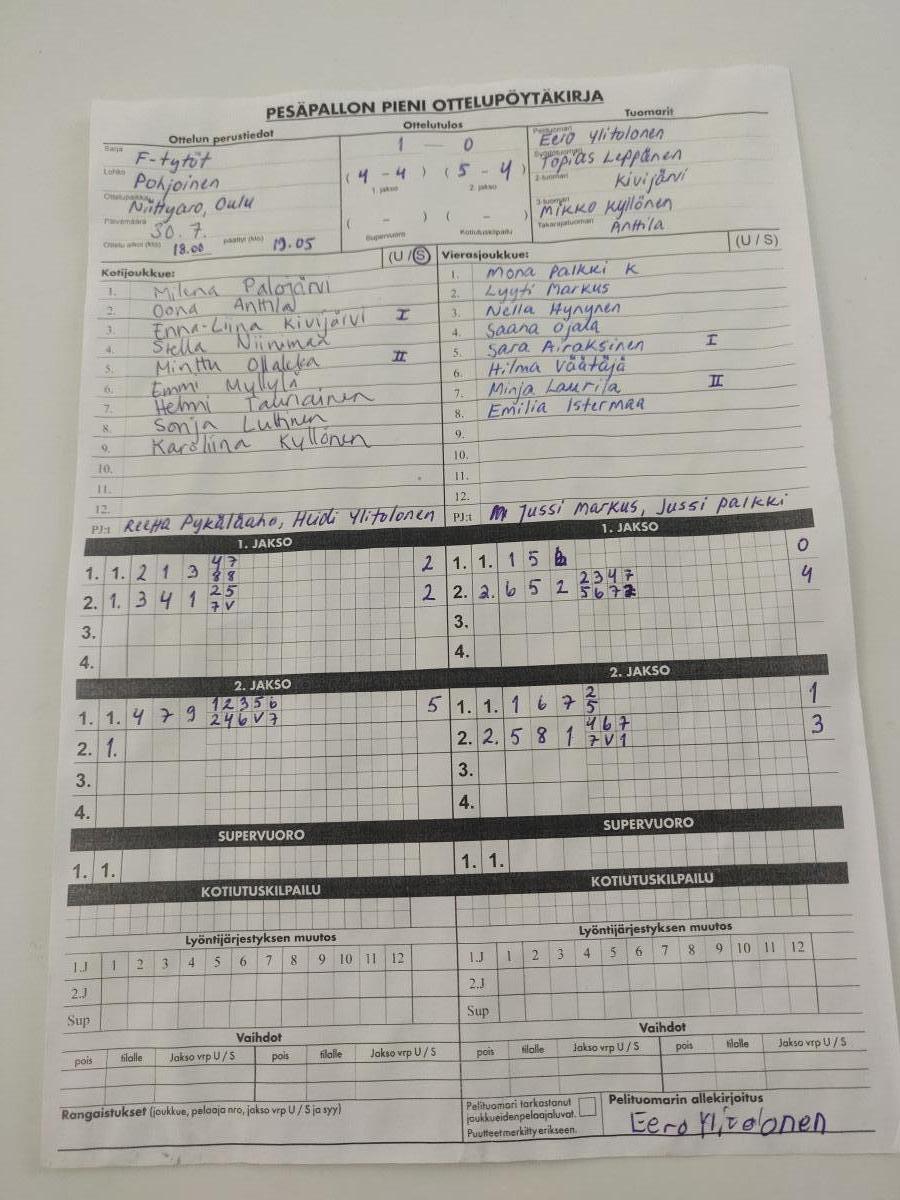 PESÄPALLON PIENI OTTELUPÖYTÄKIRJA
Ottelun perustiedot
Sarja F-tytöt
Lohko Pohjoinen
Ottelupaikka Niittyaro, Oulu
Päivämäärä 30.7.
Ottelu alkoi (klo) 18.00 päättyi (klo) 19.05
Ottelutulos
1 - 0
(4 - 4) (5 - 4)
1. jakso 2. jakso
( - ) ( - )
Supervuoro Kotiutuskilpailu
Tuomarit
Pelituomari Eero Ylitolonen
Syöttötuomari Topias Leppänen
2-tuomari Kivijärvi
3-tuomari Mikko Kyllönen
Takarajatuomari Anttila
Kotijoukkue: (U / S)
1. Milena Palojärvi
2. Oona Anttila
3. Enna-Liina Kivijärvi I
4. Stella Niinimaa
5. Minttu Ollakka II
6. Emmi Myllylä
7. Helmi Tauriainen
8. Sonja Luttinen
9. Karoliina Kyllönen
10.
11.
12.
PJ:t Reetta Pykäläaho, Heidi Ylitolonen
Vierasjoukkue: (U / S)
1. Mona Palkki K
2. Lyyti Markus
3. Nella Hynynen
4. Saana Ojala
5. Sara Airaksinen I
6. Hilma Väätäjä
7. Minja Laurila II
8. Emilia Istermaa
9.
10.
11.
12.
PJ:t Jussi Markus, Jussi Palkki
1. JAKSO
1. 1. 2 1 3 4 7 2
8 8
2. 1. 3 4 1 2 5 2
7 V
3.
4.
1. JAKSO
1. 1. 1 5 0
2. 2. 6 5 2 2 3 4 7 4
5 6 7 2
3.
4.
2. JAKSO
1. 1. 4 7 9 1 2 3 5 6 5
2 4 6 V 7
2. 1.
3.
4.
2. JAKSO
1. 1. 1 6 7 2 1
5
2. 2. 5 8 1 4 6 7 3
7 V 1
3.
4.
SUPERVUORO
1. 1.
SUPERVUORO
1. 1.
KOTIUTUSKILPAILU
KOTIUTUSKILPAILU
Lyöntijärjestyksen muutos
1.J 1 2 3 4 5 6 7 8 9 10 11 12
2.J
Sup
Lyöntijärjestyksen muutos
1.J 1 2 3 4 5 6 7 8 9 10 11 12
2.J
Sup
Vaihdot
pois tilalle Jakso vrp U / S pois tilalle Jakso vrp U / S
Vaihdot
pois tilalle Jakso vrp U / S pois tilalle Jakso vrp U / S
Rangaistukset (joukkue, pelaaja nro, jakso vrp U / S ja syy)
Pelituomari tarkastanut
joukkueidenpelaajaluvat.
Puutteetmerkittyerikseen.
Pelituomarin allekirjoitus
Eero Ylitolonen